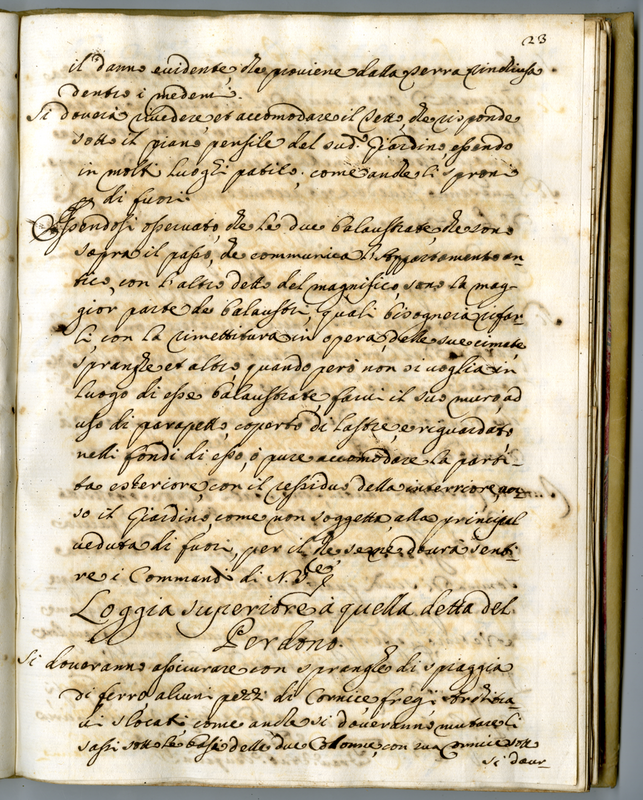 23
il danno evidente, che proviene dalla Terra rinchiusa
dentro i medemi.
Si doverà rivedere et accomodare il Tetto, che risponde
sotto il piano pensile del sud.o Giardino, essendo
in molti luoghi patito, come anche li sproni
di fuori.
Essendosi osservato, che le due balaustrate, che sono
sopra il passo, che communica l'Appartamento an-
tico, con l'altro detto del magnifico sono la mag-
gior parte de balaustri, quali bisognerà rifar-
li, con la rimettitura in opera delle sue cimate
spranghe et altro, quando però non si voglia in
luogo di esse balaustrate farvi il suo muro, ad
uso di parapetto, coperto di lastre, e riguardato
nelli fondi di esso, ò pure accomodare la parti-
ta esteriore, con il residuo della interriore, ver-
so il Giardino, come non soggetta alla principal
veduta di fuori, per il che se ne dovrà senti-
re i Command di N. S.re
Loggia superiore à quella detta del
Perdono.
Si doveranno assicurare con spranghe di spiaggia
di ferro alcuni pezzi di Cornice fregi
ti slocati, come anche si doveranno mutare li
sassi sotto le basi delle due Colonne, con sua Cornice sotto
si dour